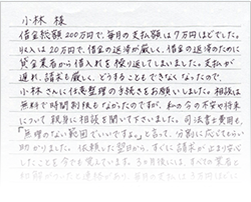 小林 様
借金総額200万円で、毎月の支払額は7万円ほどでした。
収入は20万円で、借金の返済が厳しく、借金の返済のために
貸金業者から借入れを繰り返してしまいました。支払が
遅れ、請求も厳しく、どうすることもできなくなったので、
小林さんに任意整理の手続きをお願いしました。相談は
無料で時間制限もなかったのですが、私の今の不安や将来
について親身に相談を聞いて下さいました。司法書士費用も、
「無理のない範囲でいいですよ。」と言って、分割に応じてもらい
助かりました。依頼した翌日から、すぐに請求が止まり安心
したことを今でも覚えています。3ヶ月後には、すべての業者と